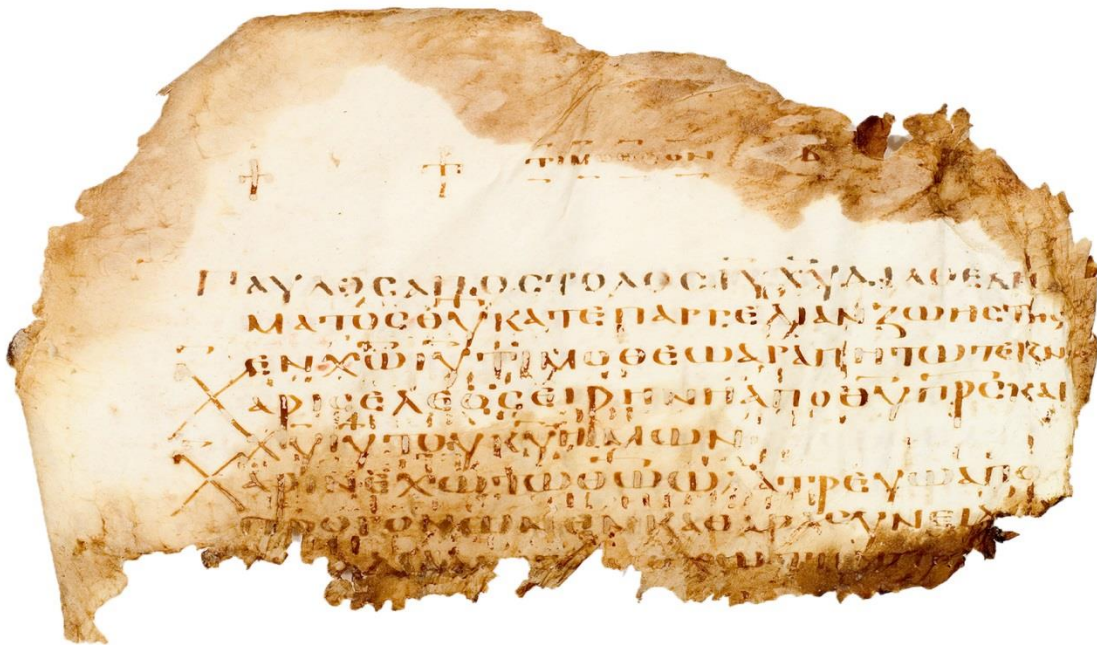 ΤΙΜΟΘΕΟΝ Β
ΠΑΥΛΟΣ ΑΠΟΣΤΟΛΟΣ ΙΥ ΧΥ ΔΙΑ ΘΕΛΗ
ΜΑΤΟΣ ΘΥ ΚΑΤ ΕΠΑΓΓΕΛΙΑΝ ΖΩΗΣ ΤΗΣ
ΕΝ ΧΩ ΙΥ ΤΙΜΟΘΕΩ ΑΓΑΠΗΤΩ ΤΕΚΝΩ
ΧΑΡΙΣ ΕΛΕΟΣ ΕΙΡΗΝΗ ΑΠΟ ΘΥ ΠΡΣ ΚΑΙ
ΧΥ ΙΥ ΤΟΥ ΚΥ ΗΜΩΝ
ΧΑΡΙΝ ΕΧΩ ΤΩ ΘΩ Ω ΛΑΤΡΕΥΩ ΑΠΟ
ΠΡΟΓΟΝΩΝ ΕΝ ΚΑΘΑΡΑ ΣΥΝΕΙ